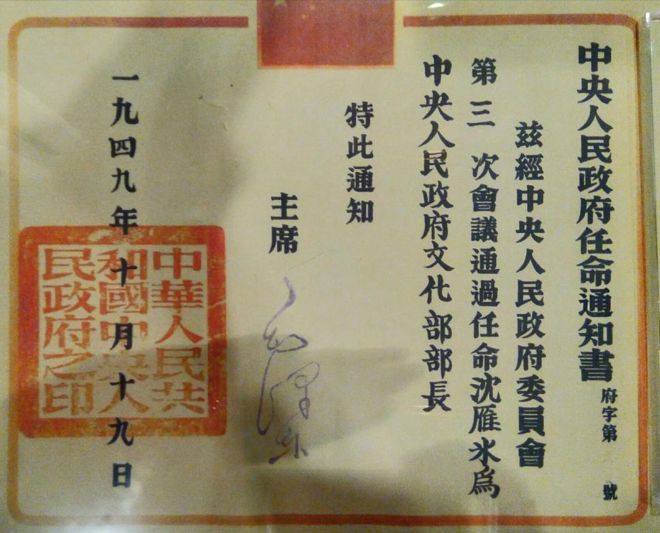 中央人民政府任命通知書
府字第 號
兹經中央人民政府委員會
第三次會議通過任命沈雁冰爲
中央人民政府文化部部長
特此通知
主席
毛澤东
一九四九年十月十九日
中華人民共
和國中央人
民政府之印